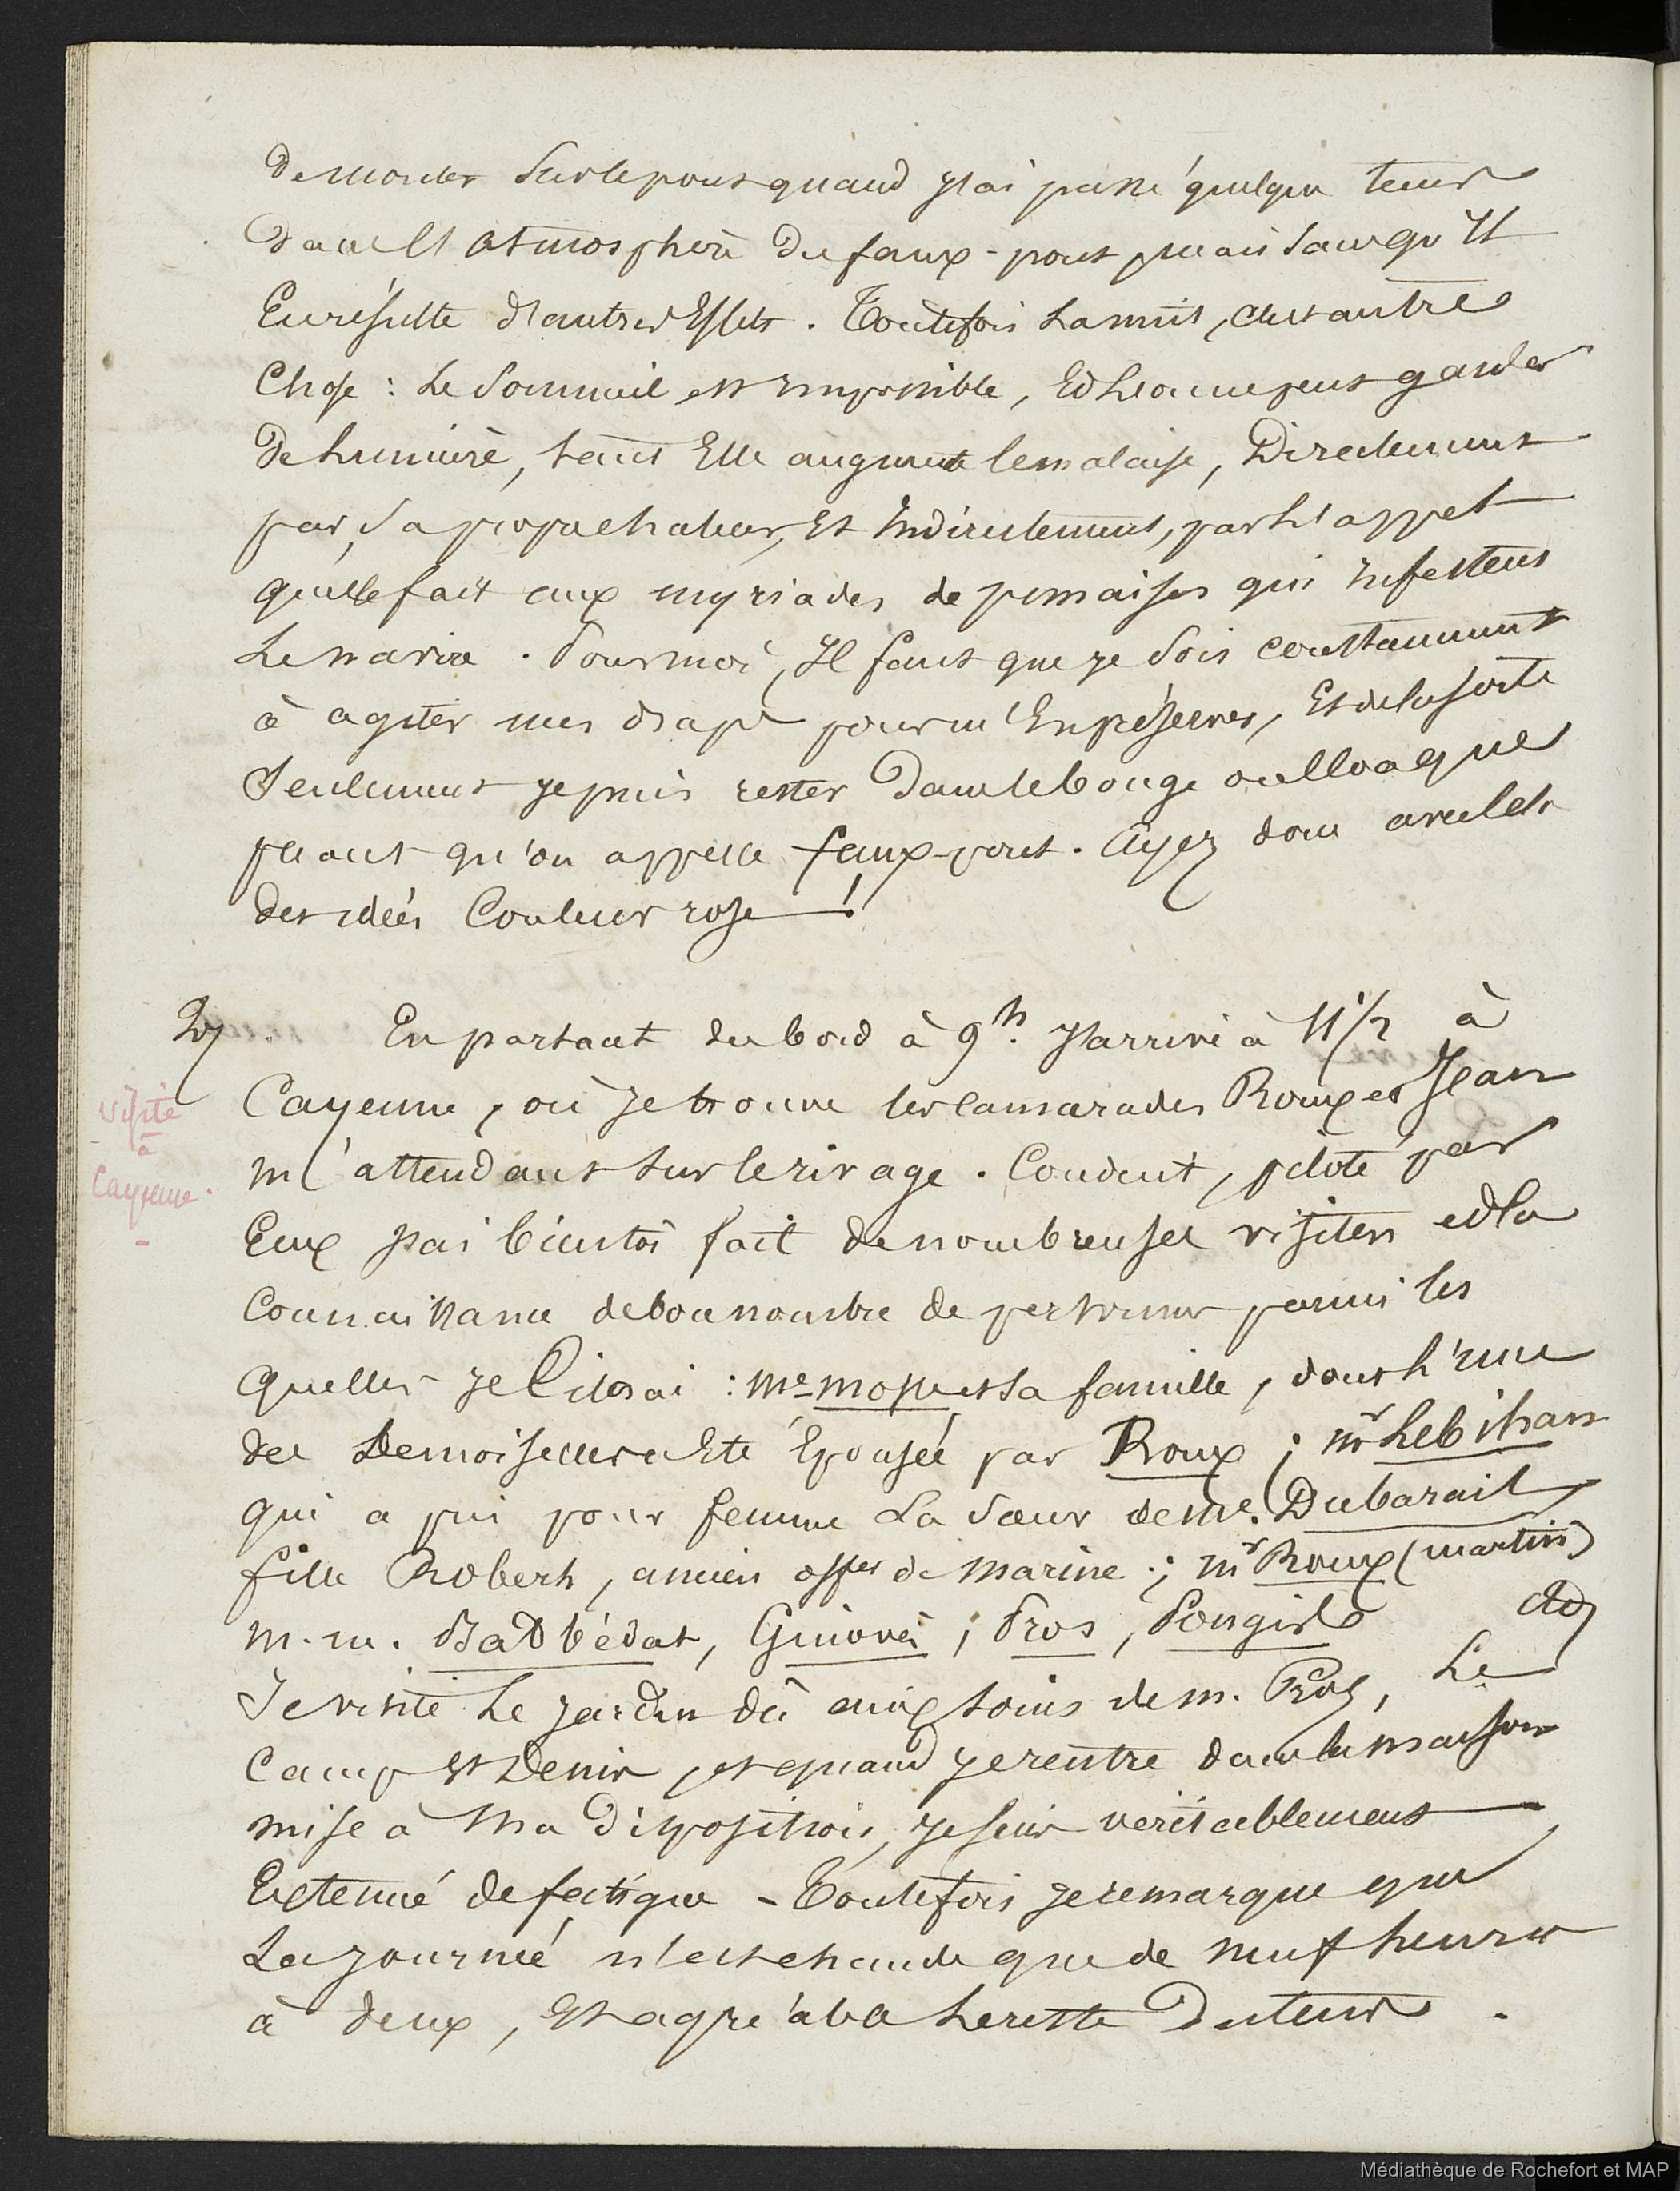 de monter sur le pont quand j'ai passé quelque tems
dans l'atmosphère du faux-pont, mais sans qu'il
en résulte d'autres effets. Toutefois la nuit, c'est autre
chose : le sommeil est impossible, et l'on ne peut garder
de lumière, tant elle augmente le malaise, directement
par sa propre chaleur, et indirectement, par l'appel
qu'elle fait aux myriades de punaises qui infestent
le navire. Pour moi, il faut que je sois constamment
à agiter mes draps pour m'en préserver, et de la sorte
seulement je puis rester dans le bouge ou cloaque
puant qu'on appelle faux-pont. Ayez donc avec cela
des idées couleur rose !
27 En partant du bord à 9h. j'arrive à 11 1/2 à
visite
à
Cayenne.
Cayenne, où je trouve les camarades Roux et Jean
m'attendant sur le rivage. Conduit, piloté par
eux j'ai bientôt fait de nombreuses visites et la
connaissance de bon nombre de personnes parmi les
quelles je citerai : Me et sa famille, dont l'une
des demoiselles a été épousée par Roux ; Mr Lebihan
qui a pris pour femme la sœur de Me. Dubarail
fille Robert, ancien offer de marine ; Mr Roux (martin)
M.M. Barbédat, ; Pros, &a
Je visite le jardin dû aux soins de M. Pros, le
camp St Denis, et quand je rentre dans la maison
mise à ma disposition, je suis véritablement
exténué de fatigue - Toutefois je remarque que
la journée n'est chaude que de neuf heures
à deux, et agréable le reste du tems.
Médiathèque de Rochefort et MAP